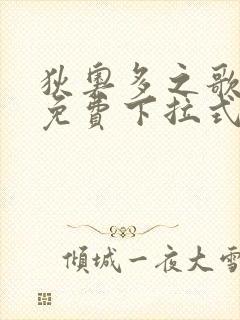 狄奧多之歌
免費下拉式
傾城一夜大雪